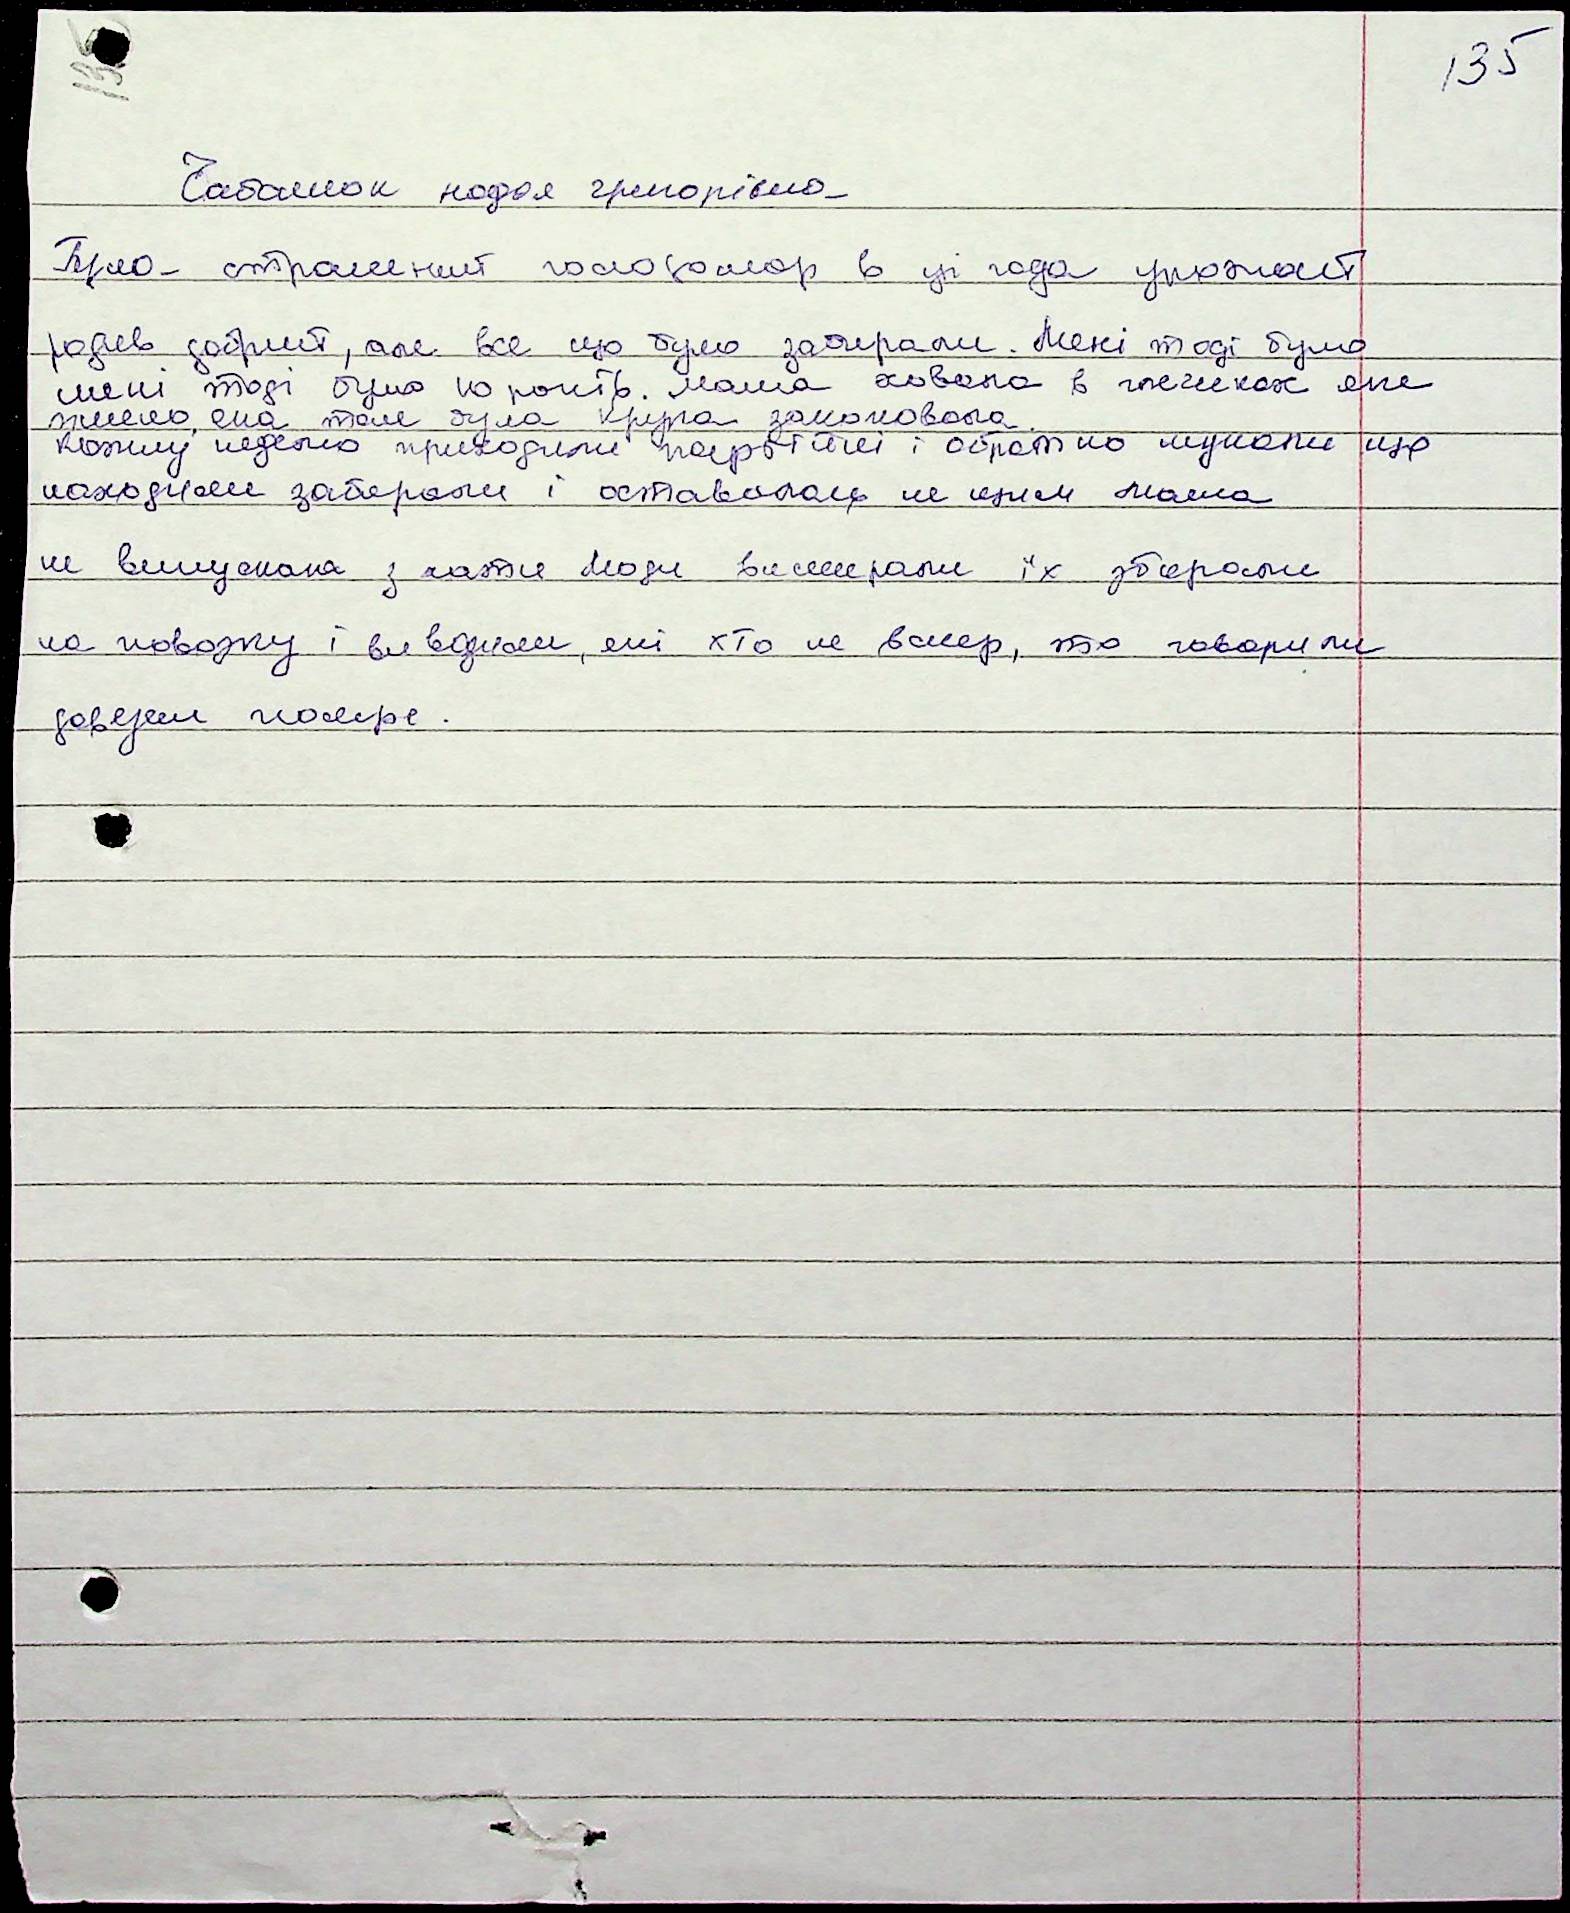 135
135
Чабанюк надія григорівна
Була страшний голодомор в ці года урожай
родив добрий, але все що було забирали. Мені тоді було
мені тоді було 10 років. мама ховала в глечиках яке
пшено, яка там була крупа закоповала.
Кожну неделю приходили партійні і обратно шукали що
находили забирали і оставалась не щим мама
не випускала з хати люди вимирали їх збирали
на повозку і вивозили, які хто не вмер, то говорили
довезем помре.